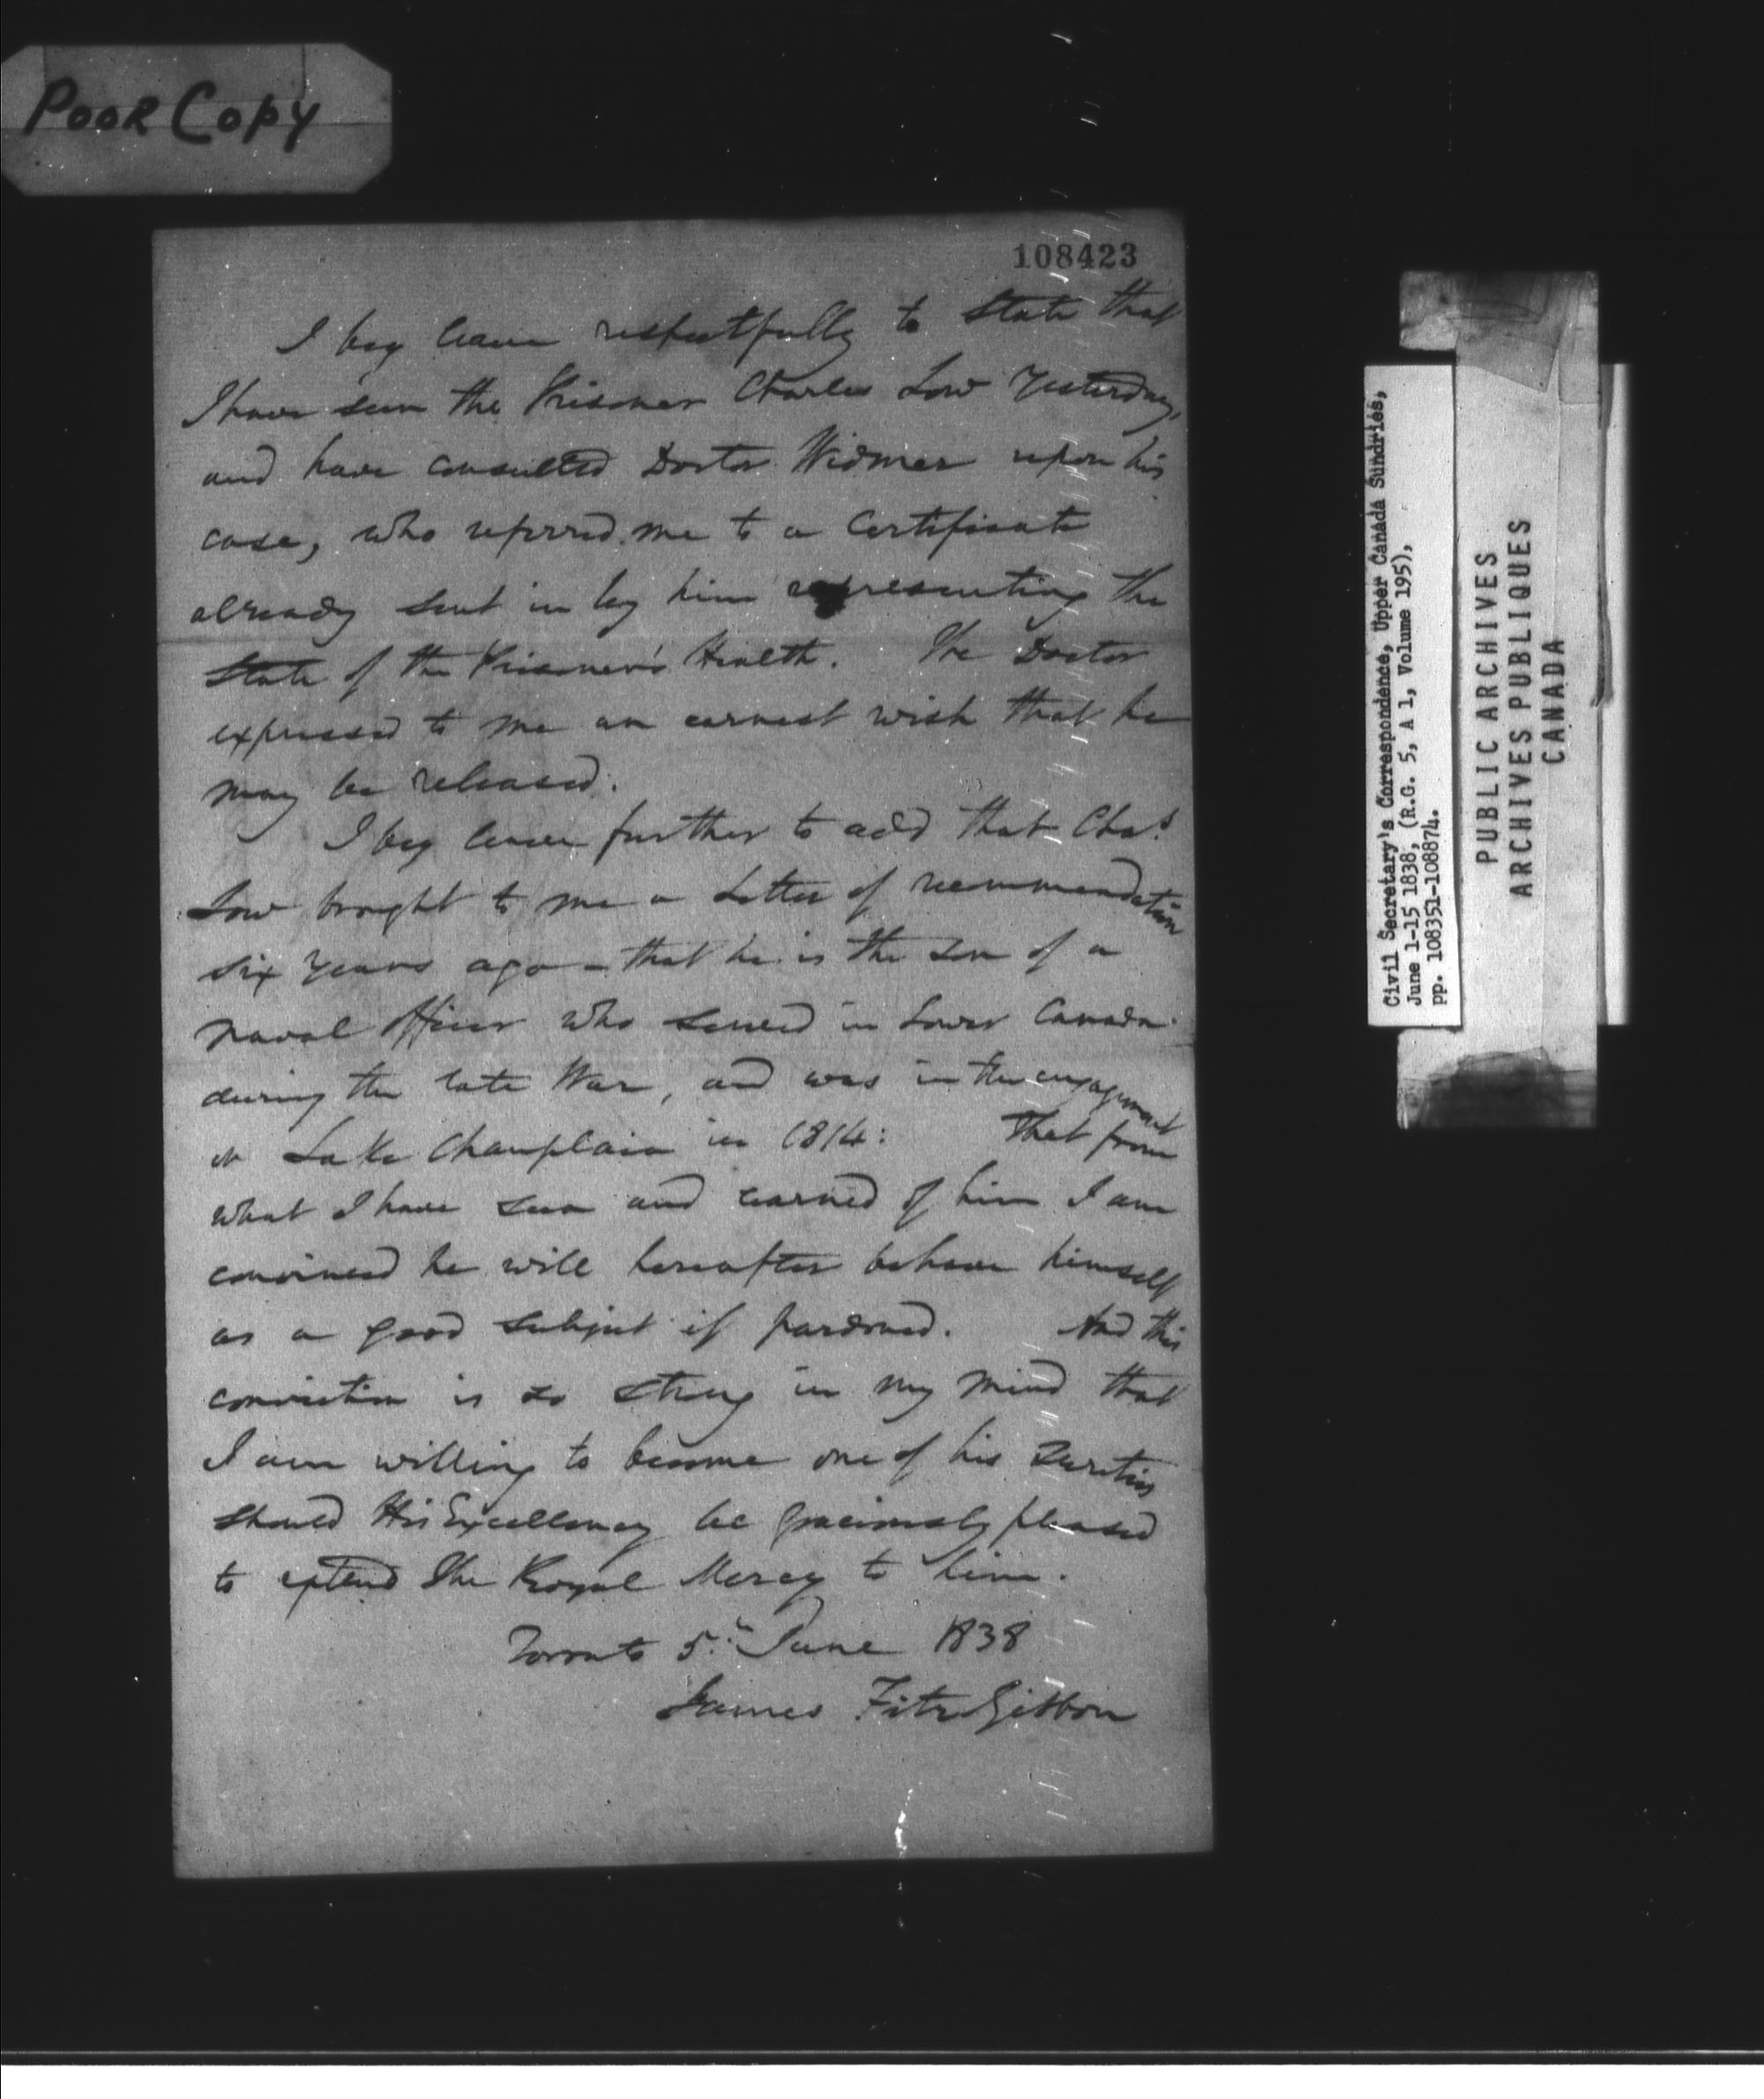 Poor Copy
108423
I beg leave respectfully to State that
I have seen the Prisoner Charles Low Yesterday,
and have consulted Doctor Widmer upon his
case, who referred me to a Certificate
already sent in by him representing the
State of the Prisoner's Health. The Doctor
expressed to me an earnest wish that he
may be released.
I beg leave further to add that Chas.
Low brought to me a Letter of recommendation
six years ago - that he is the son of a
naval officer who served in Lower Canada
during the late War, and was in the engagement
on Lake Champlain in 1814: That from
what I have seen and learned of him I am
convinced he will hereafter behave himself
as a good subject if pardoned. And this
conviction is so strong in my mind that
I am willing to become one of his Sureties
should His Excellency be graciously pleased
to extend The Royal Mercy to him.
Toronto 5th June 1838
James FitzGibbon
Civil Secretary's Correspondence, Upper Canada Sundries,
June 1-15 1838, (R.G. 5, A 1, Volume 195),
pp. 108351-108874.
PUBLIC ARCHIVES
ARCHIVES PUBLIQUES
CANADA